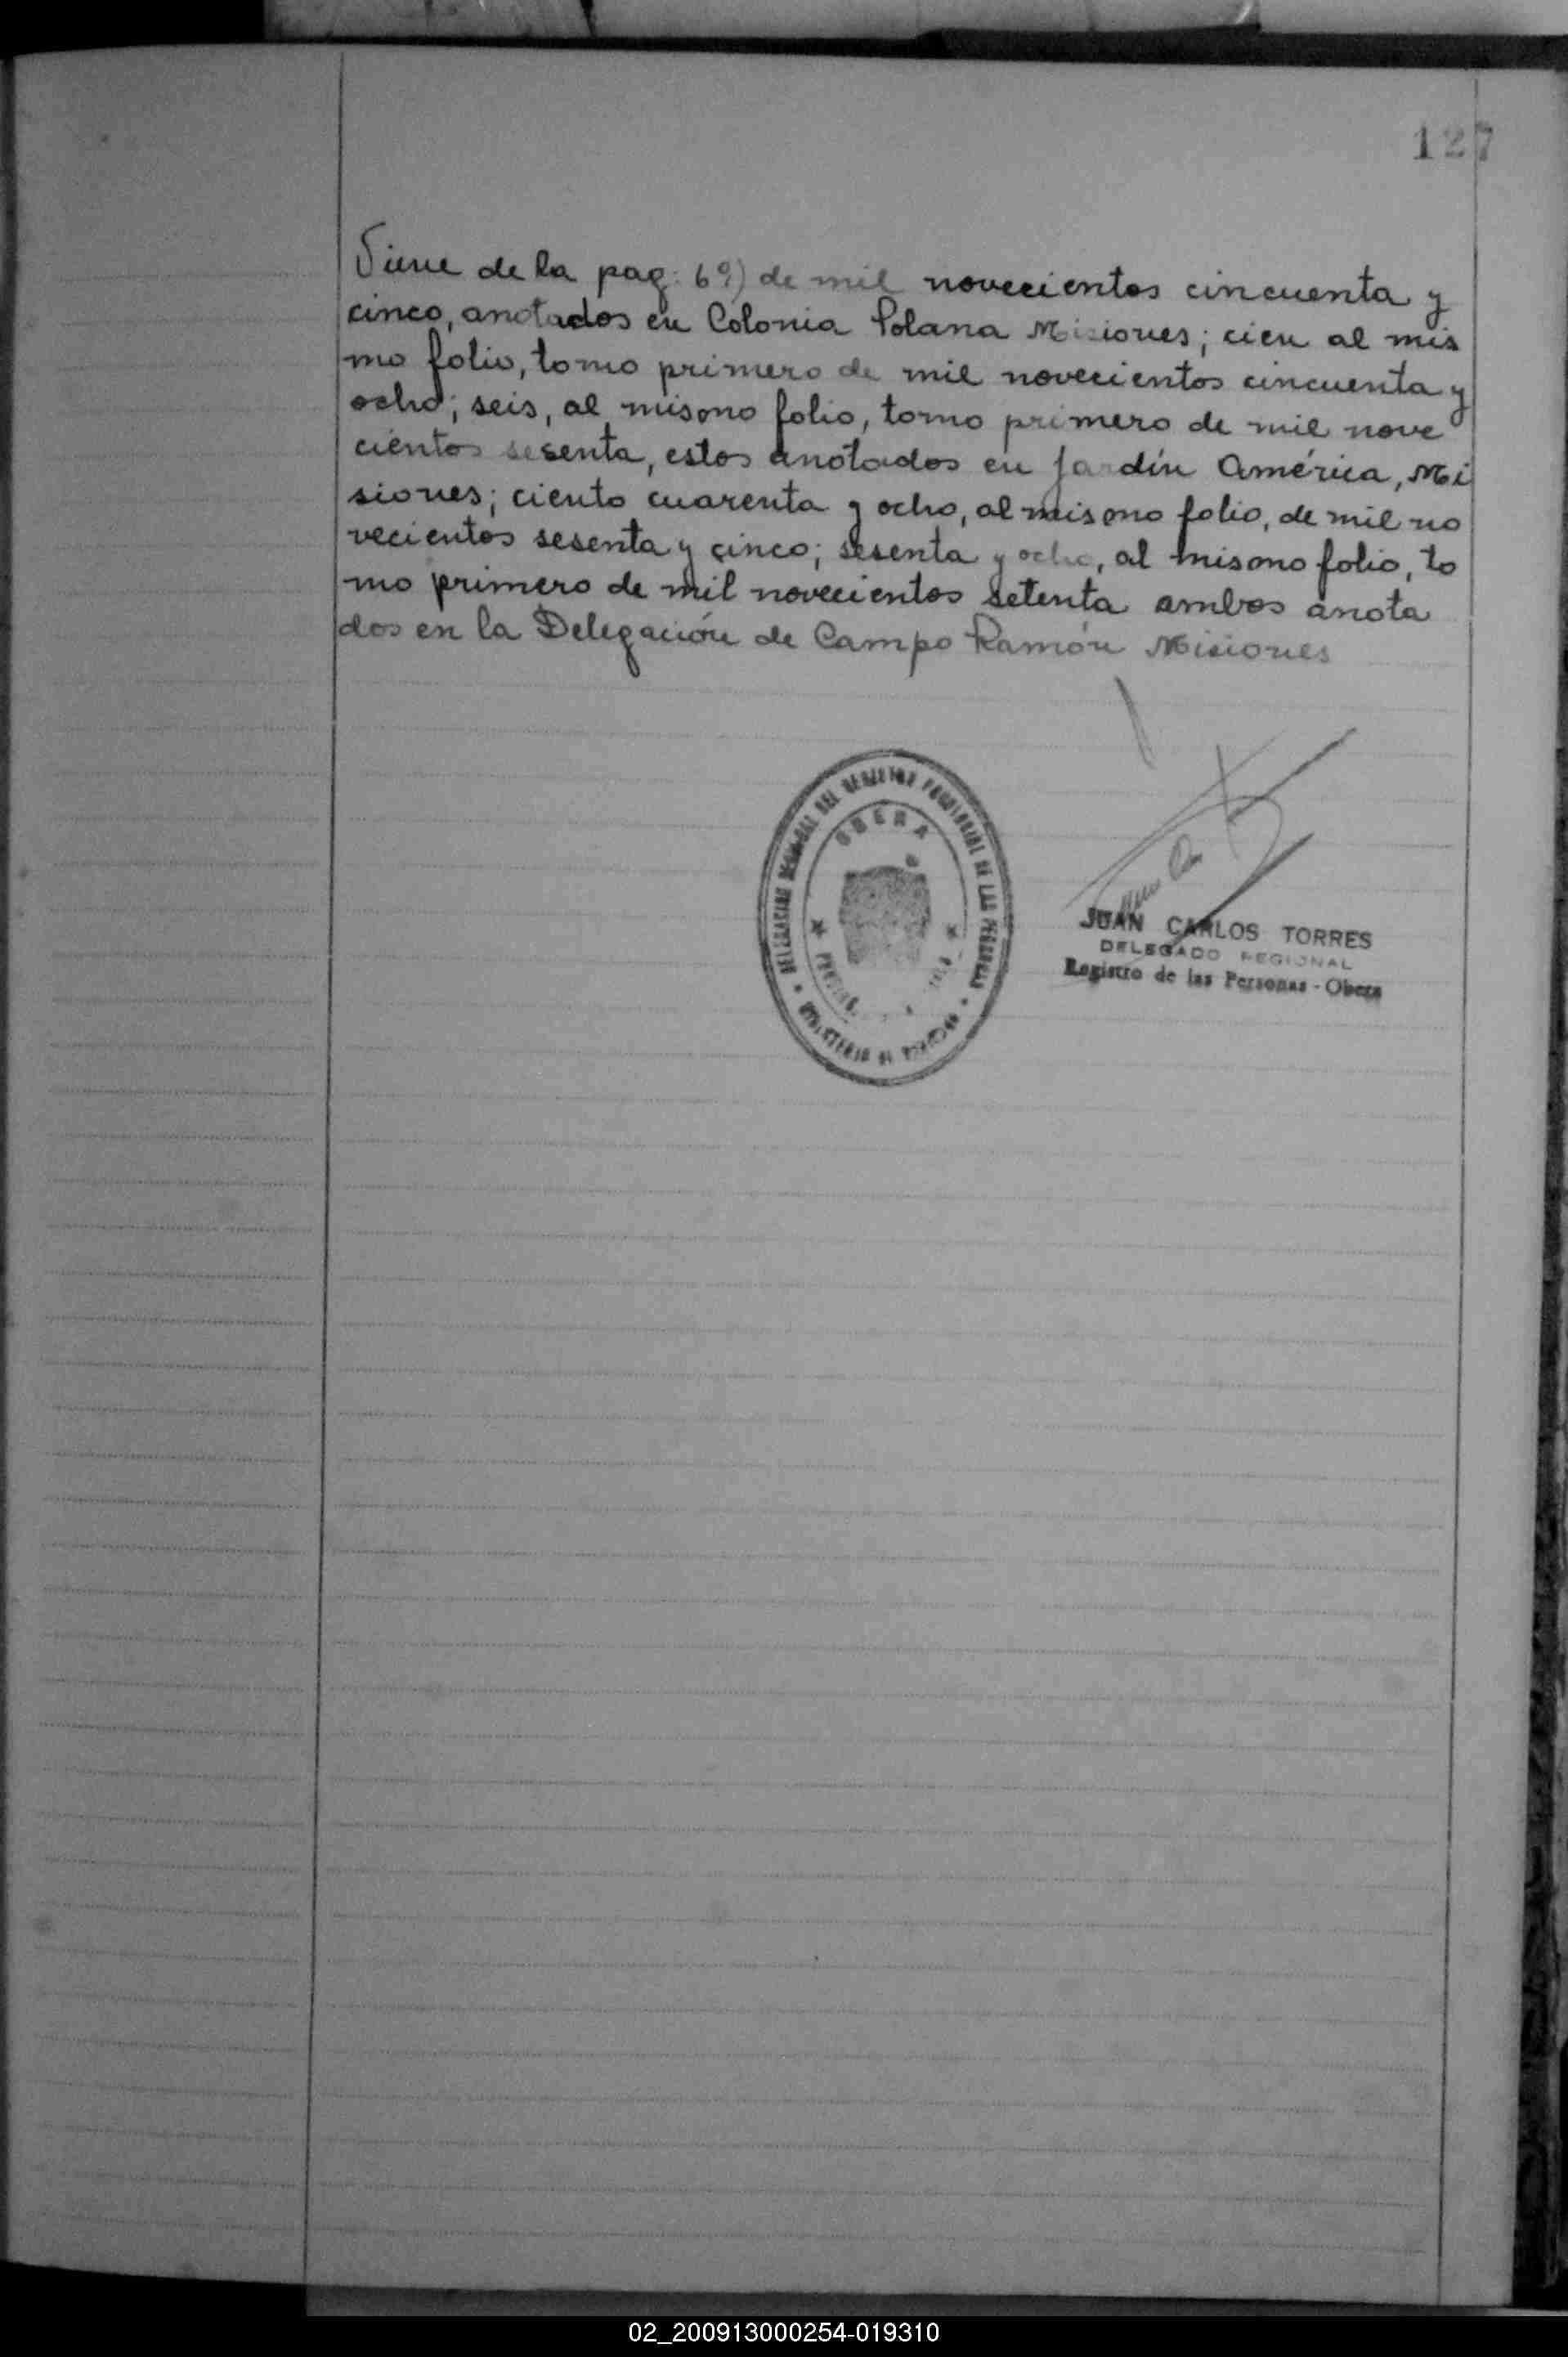 127
Viene de la pag: 69) de mil novecientos cincuenta y
cinco, anotados en Colonia Polana Misiones; cien al mis
mo folio, tomo primero de mil novecientos cincuenta y
ocho; seis, al mismo folio, tomo primero de mil nove
cientos sesenta, estos anotados en Jardín América, Mi
siones; ciento cuarenta y ocho, al mismo folio, de mil no
vecientos sesenta y cinco; sesenta y ocho, al mismo folio, to
mo primero de mil novecientos setenta ambos anota
dos en la Delegación de Campo Ramón Misiones
DELEGACION REGIONAL DEL REGISTRO PROVINCIAL DE LAS PERSONAS
OBERA
MINISTERIO DE GOBIERNO
JUAN CARLOS TORRES
DELEGADO REGIONAL
Registro de las Personas - Obera
02_200913000254-019310